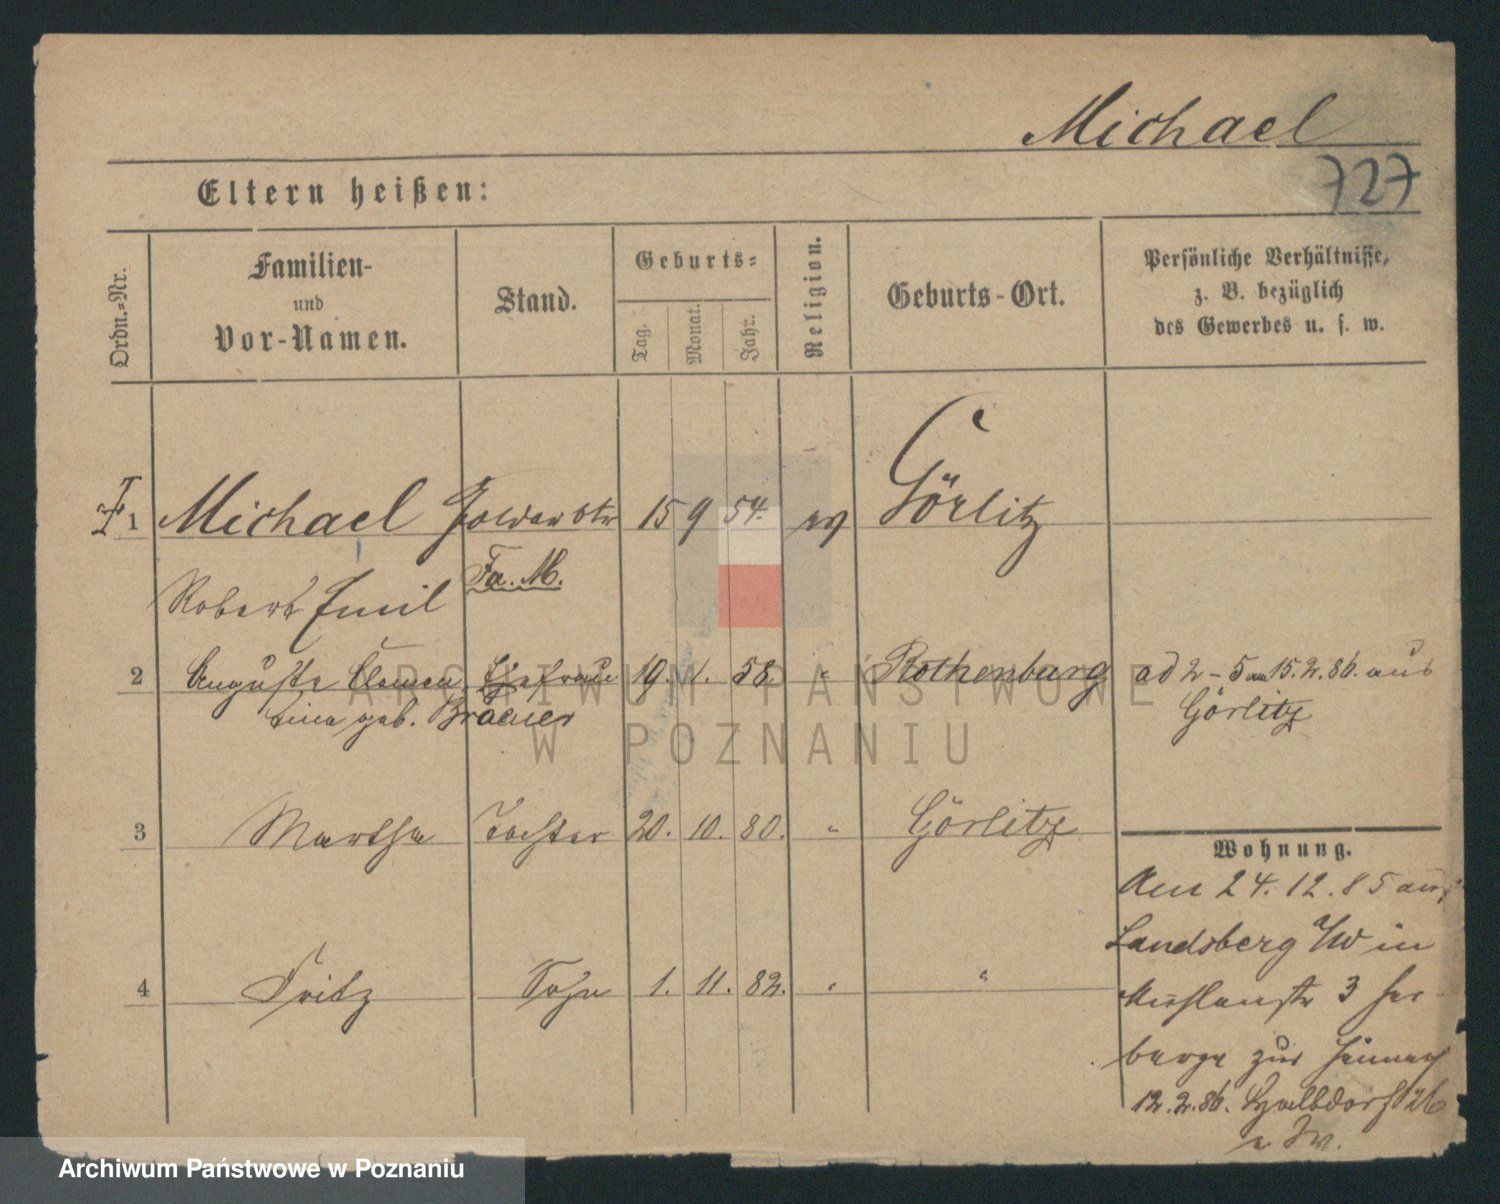 Michael
727
Eltern heißen:
Ordn.=Nr.
Familien- und Vor-Namen.
Stand.
Geburts=
Tag.
Monat.
Jahr.
Religion.
Geburts-Ort.
Persönliche Verhältnisse,
z. B. bezüglich
des Gewerbes u. s. w.
1 Michael 15 9 54. ev Görlitz
Robert Emil Fa. M.
2 Auguste Clemen Ehefrau 19. 1. 58. " Rothenburg ad 2-5 am 15.2.86. aus
tine geb. Braeuer Görlitz
3 Martha Tochter 20. 10. 80. " Görlitz
Wohnung.
Am 24.12.85 aus
Landsberg /W in
4 Fritz Sohn 1. 11. 82. " "
Mühlenstr 3 Her-
berge zur Heimath
12.2.86. Halbdorfst 26
ARCHIWUM PAŃSTWOWE
W POZNANIU
Archiwum Państwowe w Poznaniu